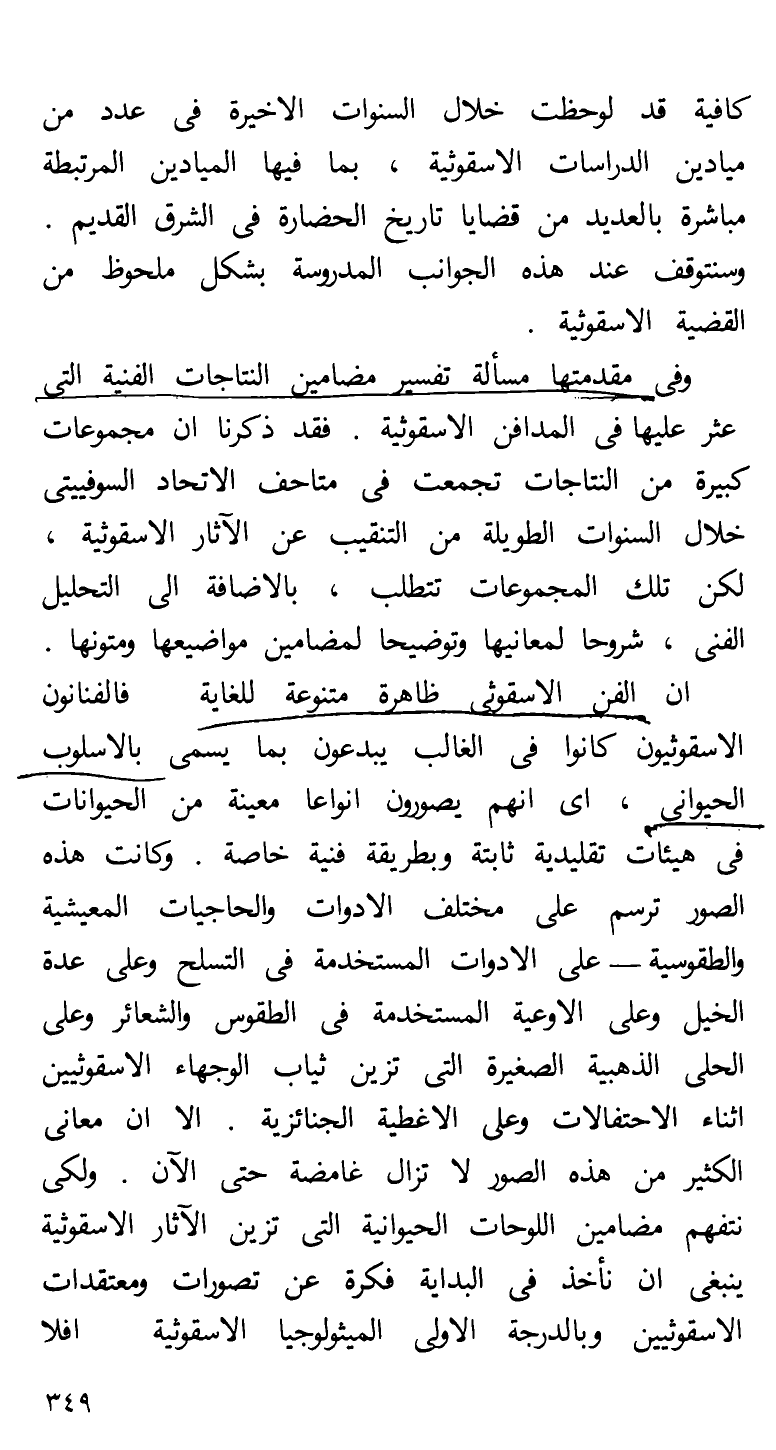 كافية قد لوحظت خلال السنوات الاخيرة فى عدد من
ميادين الدراسات الاسقوثية ، بما فيها الميادين المرتبطة
مباشرة بالعديد من قضايا تاريخ الحضارة فى الشرق القديم .
وسنتوقف عند هذه الجوانب المدروسة بشكل ملحوظ من
القضية الاسقوثية .
وفى مقدمتها مسألة تفسير مضامين النتاجات الفنية التى
عثر عليها فى المدافن الاسقوثية . فقد ذكرنا ان مجموعات
كبيرة من النتاجات تجمعت فى متاحف الاتحاد السوفييتى
خلال السنوات الطويلة من التنقيب عن الآثار الاسقوثية ،
لكن تلك المجموعات تتطلب ، بالاضافة الى التحليل
الفنى ، شروحا لمعانيها وتوضيحا لمضامين مواضيعها ومتونها .
ان الفن الاسقوثى ظاهرة متنوعة للغاية فالفنانون
الاسقوثيون كانوا فى الغالب يبدعون بما يسمى بالاسلوب
الحيوانى ، اى انهم يصورون انواعا معينة من الحيوانات
فى هيئات تقليدية ثابتة وبطريقة فنية خاصة . وكانت هذه
الصور ترسم على مختلف الادوات والحاجيات المعيشية
والطقوسية — على الادوات المستخدمة فى التسلح وعلى عدة
الخيل وعلى الاوعية المستخدمة فى الطقوس والشعائر وعلى
الحلى الذهبية الصغيرة التى تزين ثياب الوجهاء الاسقوثيين
اثناء الاحتفالات وعلى الاغطية الجنائزية . الا ان معانى
الكثير من هذه الصور لا تزال غامضة حتى الآن . ولكى
نتفهم مضامين اللوحات الحيوانية التى تزين الآثار الاسقوثية
ينبغى ان نأخذ فى البداية فكرة عن تصورات ومعتقدات
الاسقوثيين وبالدرجة الاولى الميثولوجيا الاسقوثية افلا
٣٤٩